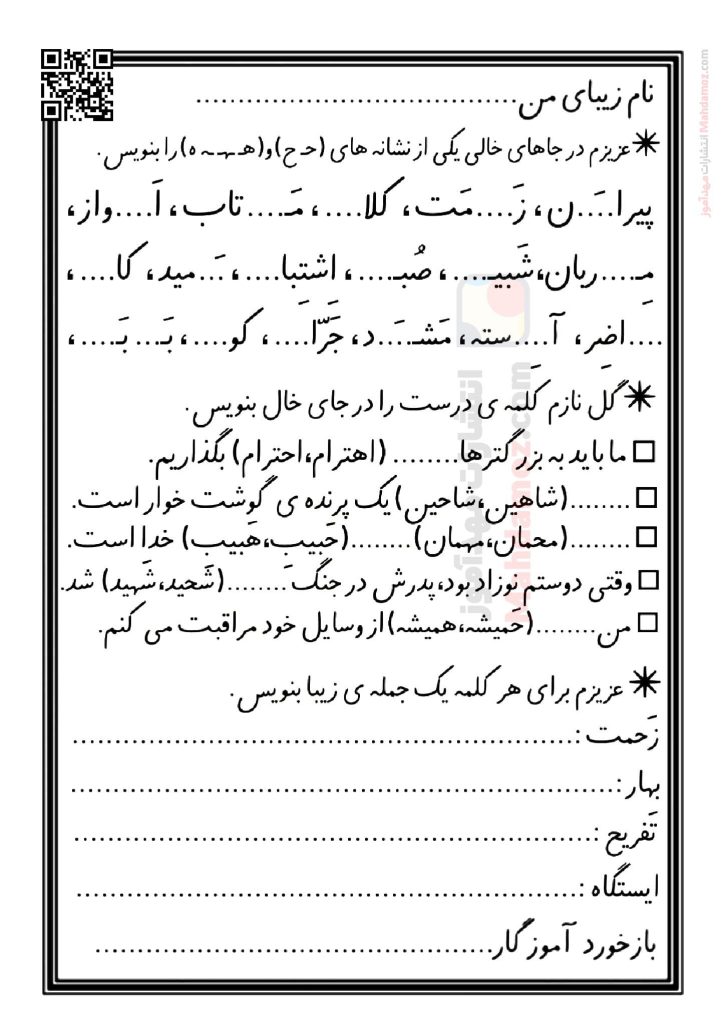 نام زیبای من......................................
عزیزم در جاهای خالی یکی از نشانه های (حـ ح)و(هـ ـهـ ـه ه)را بنویس.
پیرا....َن، زَ....مَت، کلا....، مَـ....تاب، اَ....واز،
مِـ....ربان،شَبیـ....، صُبـ....، اِشتِبا....، َ...مید، کا....،
....اضِر، آ....ِسته، مَشـ....َد، جَرّا....، کو....، بَـ... بَـ....،
گل نازم کلمه ی درست را در جای خال بنویس.
ما باید به بزرگترها........ (اهترام،احترام) بگذاریم.
........(شاهین،شاحین) یک پرنده ی گوشت خوار است.
........(محمان،مهمان)........(حَبیب،هَبیب) خدا است.
وقتی دوستم نوزاد بود،پدرش در جنگ........(شَحید،شَهید) شد.
من........(حَمیشه،همیشه)از وسایل خود مراقبت می کنم.
عزیزم برای هر کلمه یک جمله ی زیبا بنویس.
زَحمت :............................................................
بهار :.................................................................
تَفریح :..............................................................
ایستگاه :............................................................
بازخورد آموزگار................................................
انتشارات مهدآموز Mahdamoz.com
انتشارات مهدآموز
Mahdamoz.com